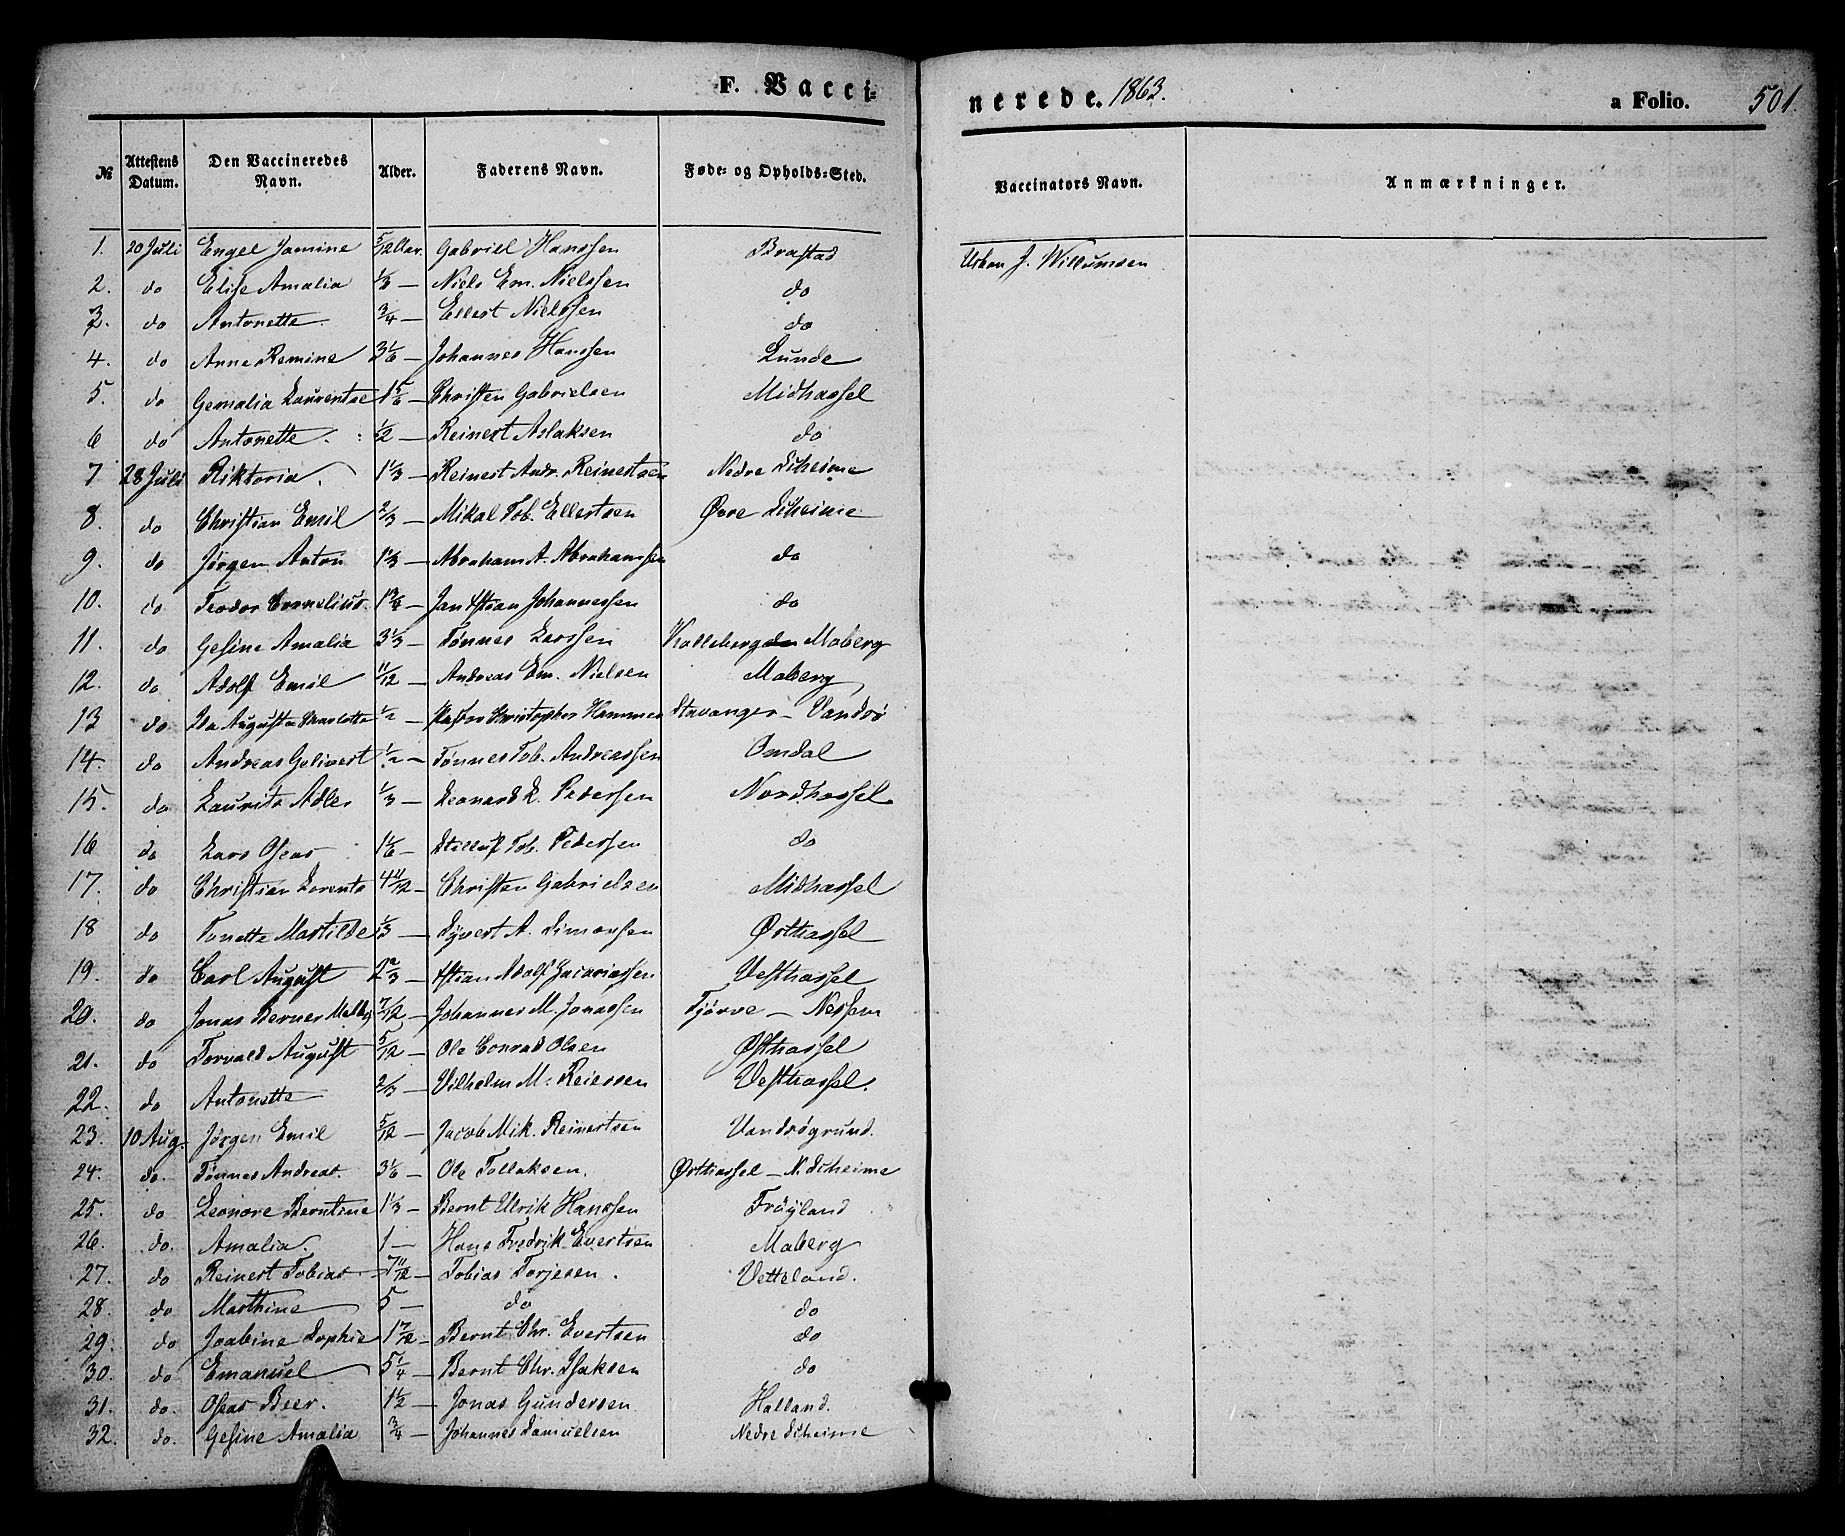 F. Vacci=
nerede. 1863.
a Folio. 501.
№ Attestens Datum. Den Vaccineredes Navn. Alder. Faderens Navn. Føde- og Opholds-Sted. Vaccinators Navn. Anmærkninger.
1. 20 Juli Engel Jamine 5/12 Aar. Gabriel Hanssen Brastad Urban J. Willumsen
2. do Elise Amalia 1/3 — Niels Em. Nielssen do
3. do Antonette 3/4 — Ellert Nielssen do
4. do Anne Remine 3 1/6 — Johannes Hanssen Lunde
5. do Gemalia Laurentze 1 5/6 — Christen Gabrielsen Midhassel
6 do Antonette. 1/2 — Reinert Aslaksen do
7 28 Juli Riktoria. 1 1/3 — Reinert Andr. Reinertsen Nedre Skeime
8. do Christian Emil 2/3 — Mikal Tob. Ellertsen Øvre Skeime
9. do Jørgen Anton 1 1/3 — Abraham A. Abrahamssen do
10. do Teodor Cornelius. 1 3/4 — Jan Chstian Johannessen do
11. do Gesine Amalia 3 1/3 — Tønnes Larssen Kalleberg Maberg
12. do Adolf Emil 11/12 — Andreas Em. Nielsen Maberg
13 do Ida Augusta Charlotte 1/2 — Christopher Hammer Stavanger — Vandsø
14. do Andreas Gelivert 1/2 — Tønnes Tob. Andreassen Omdal
15. do Laurits Adler 1/3 — Leonard L. Pedersen Nordhassel.
16 do Lars Oseas 1 1/6 — Stilluf Tob. Pedersen do
17. do Christian Lorents 4 11/12 — Christen Gabrielsen Midhassel
18 do Tonette Martilde 1/3 — Syvert A. Simonsen Østhassel
19. do Carl August 2 2/3 — Chstian Adolf Zacariassen Vesthassel
20. do Jonas Berner Melby 7/12 — Johannes M. Jonassen Tjørve — Nessem
21. do Torvald August 5/12 — Ole Conrad Olsen Østhassel
22. do Antonette 2/3 — Vilhelm M. Reiersen Vesthassel.
23. 10 Aug. Jørgen Emil 5/12 — Jacob Mik. Reinertsen Vandsøgrund.
24. do. Tønnes Andreas. 3 1/6 — Ole Tollaksen. Østhassel — N. Skeime
25. do Leonore Berntine 1 1/3 — Bernt Ulrik Hanssen Frøyland
26. do. Amalia. 1 — Hans Fredrik Evertsen Maberg
27. do Reinert Tobias 7 11/12 — Tobias Torjesen. Vetteland.
28. do Marthine 5 — do do
29. do Joabine Sophie 1 7/12 — Bernt Chr. Evertsen do
30. do Emanuel 5 1/4 — Bernt Chr. Isaksen do
31. do. Oseas Beer. 1 1/2 — Jonas Gundersen Halland.
32. do. Gesine Amalia 3/4 — Johannes Samuelsen Nedre Skeime